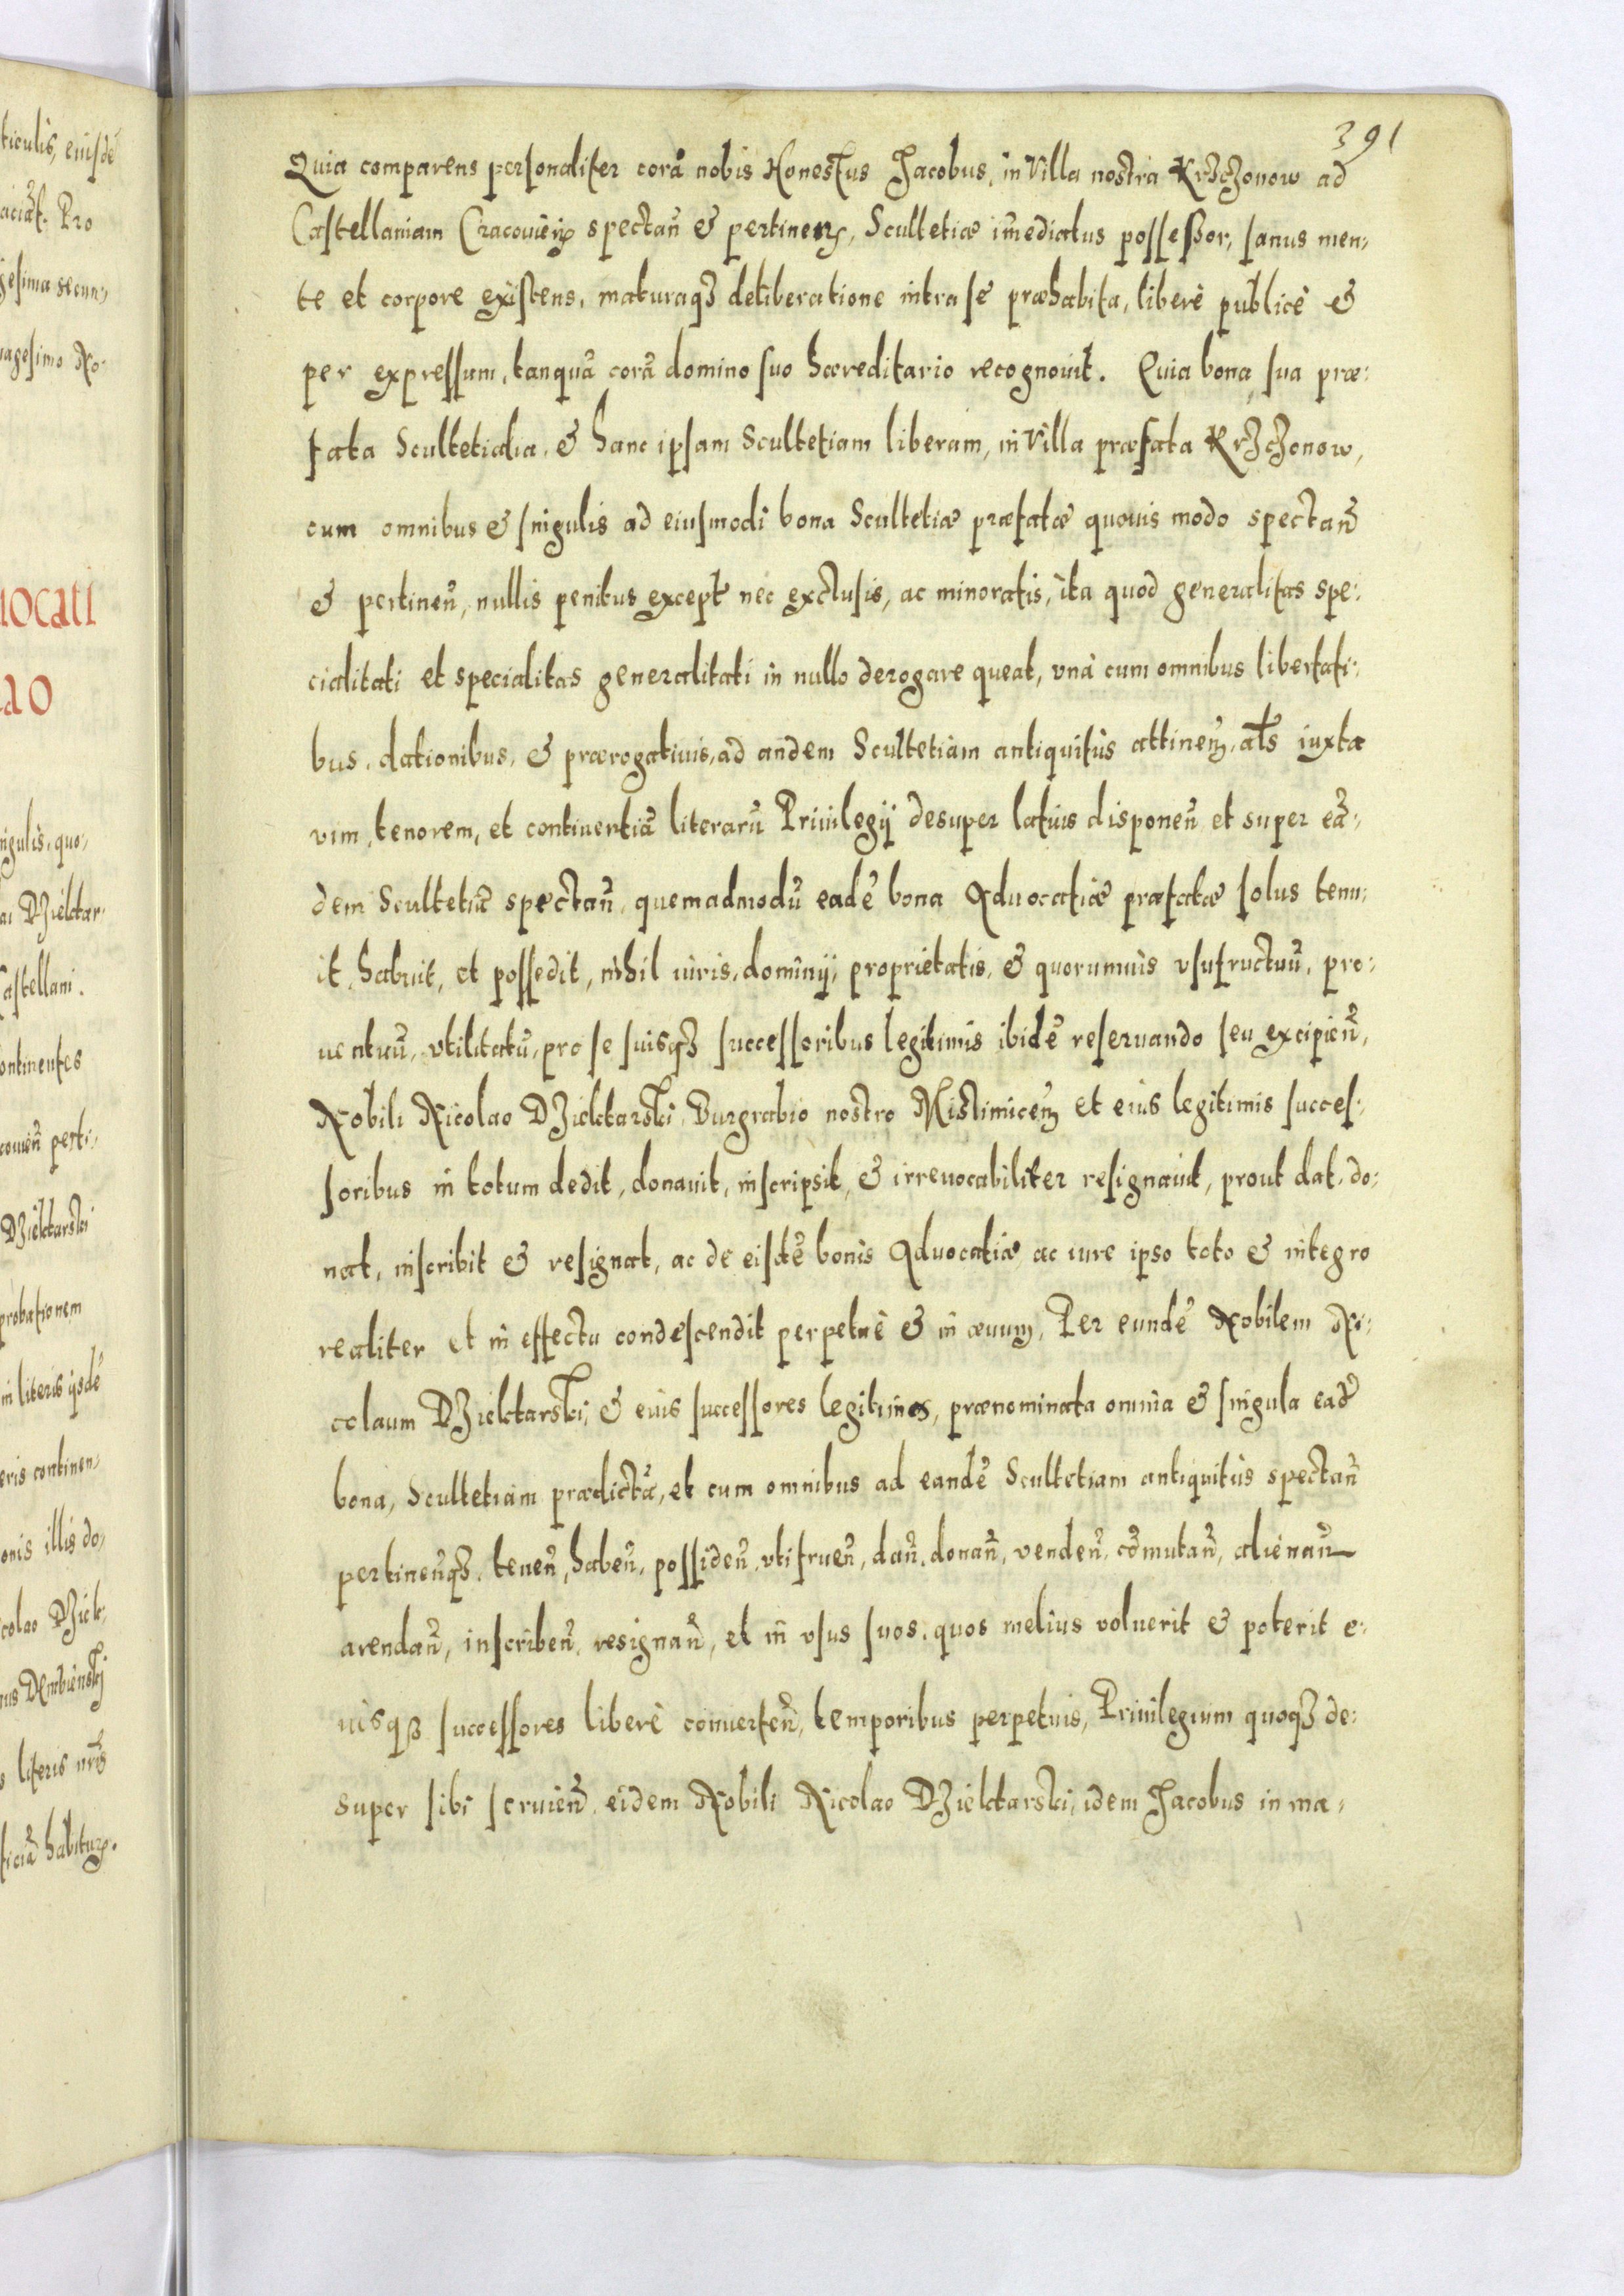 391
Quia comparens personaliter corā nobis Honestus Jacobus, in Villa nostra Krzczonow ad
Castellaniam Cracouień spectań & pertineń, Scultetiæ im̄ediatus possessor, sanus men,
te et corpore existens, maturaq3 deliberatione intra se præhabita, liberè publicè &
per expressum, tanquā corā domino suo hæreditario recognouit. Quia bona sua præ:
fata Scultetialia, & hanc ipsam Scultetiam liberam, in Villa præfata Krzczonow,
cum omnibus & singulis ad eiusmodi bona Scultetiæ præfatæ quouis modo spectań
& pertineń, nullis penitus except̄ nec exclusis, ac minoratis, ita quod generalitas spe:
cialitati et specialitas generalitati in nullo derogare queat, vnà cum omnibus libertati:
bus, dationibus, & prærogatiuis, ad andem Scultetiam antiquitùs attineń, als iuxta
vim, tenorem, et continentiā literarū Priuilegij desuper latius disponeń et super eā,
dem Scultetiā spectań, quemadmodū eadē bona Aduocatiæ præfatæ solus tenu,
it, habuit, et possedit, nihil iuris, dominij, proprietatis, & quorumuis vsufructuū, pro:
uentuū, vtilitatū, pro se suisq3 successoribus legitimis ibidē reseruando seu excipień,
Nobili Nicolao Dzielctarski, Burgrabio nostro Mistimiceń et eius legitimis succes:
soribus in totum dedit, donauit, inscripsit, & irreuocabiliter resignauit, prout dat, do:
nat, inscribit & resignat, ac de eisdē bonis Aduocatiæ ac iure ipso toto & integro
realiter et in effectu condescendit perpetuè & in æuum, Per eundē Nobilem Ni:
colaum Dzielctarski, & eius successores legitimos, prænominata omnia & singula ead̄
bona, Scultetiam prædictā, et cum omnibus ad eandē Scultetiam antiquitùs spectań
pertineńq3, teneń, habeń, possideń, vtifrueń, dań, donań, vendeń, cōmutań, alienań
arendań, inscribeń, resignań, et in vsus suos, quos melius voluerit & poterit e:
iusq3 successores liberè conuerteń, temporibus perpetuis, Priuilegium quoq3 de:
super sibi seruień, eidem Nobili Nicolao Dzielctarski, idem Jacobus in ma,